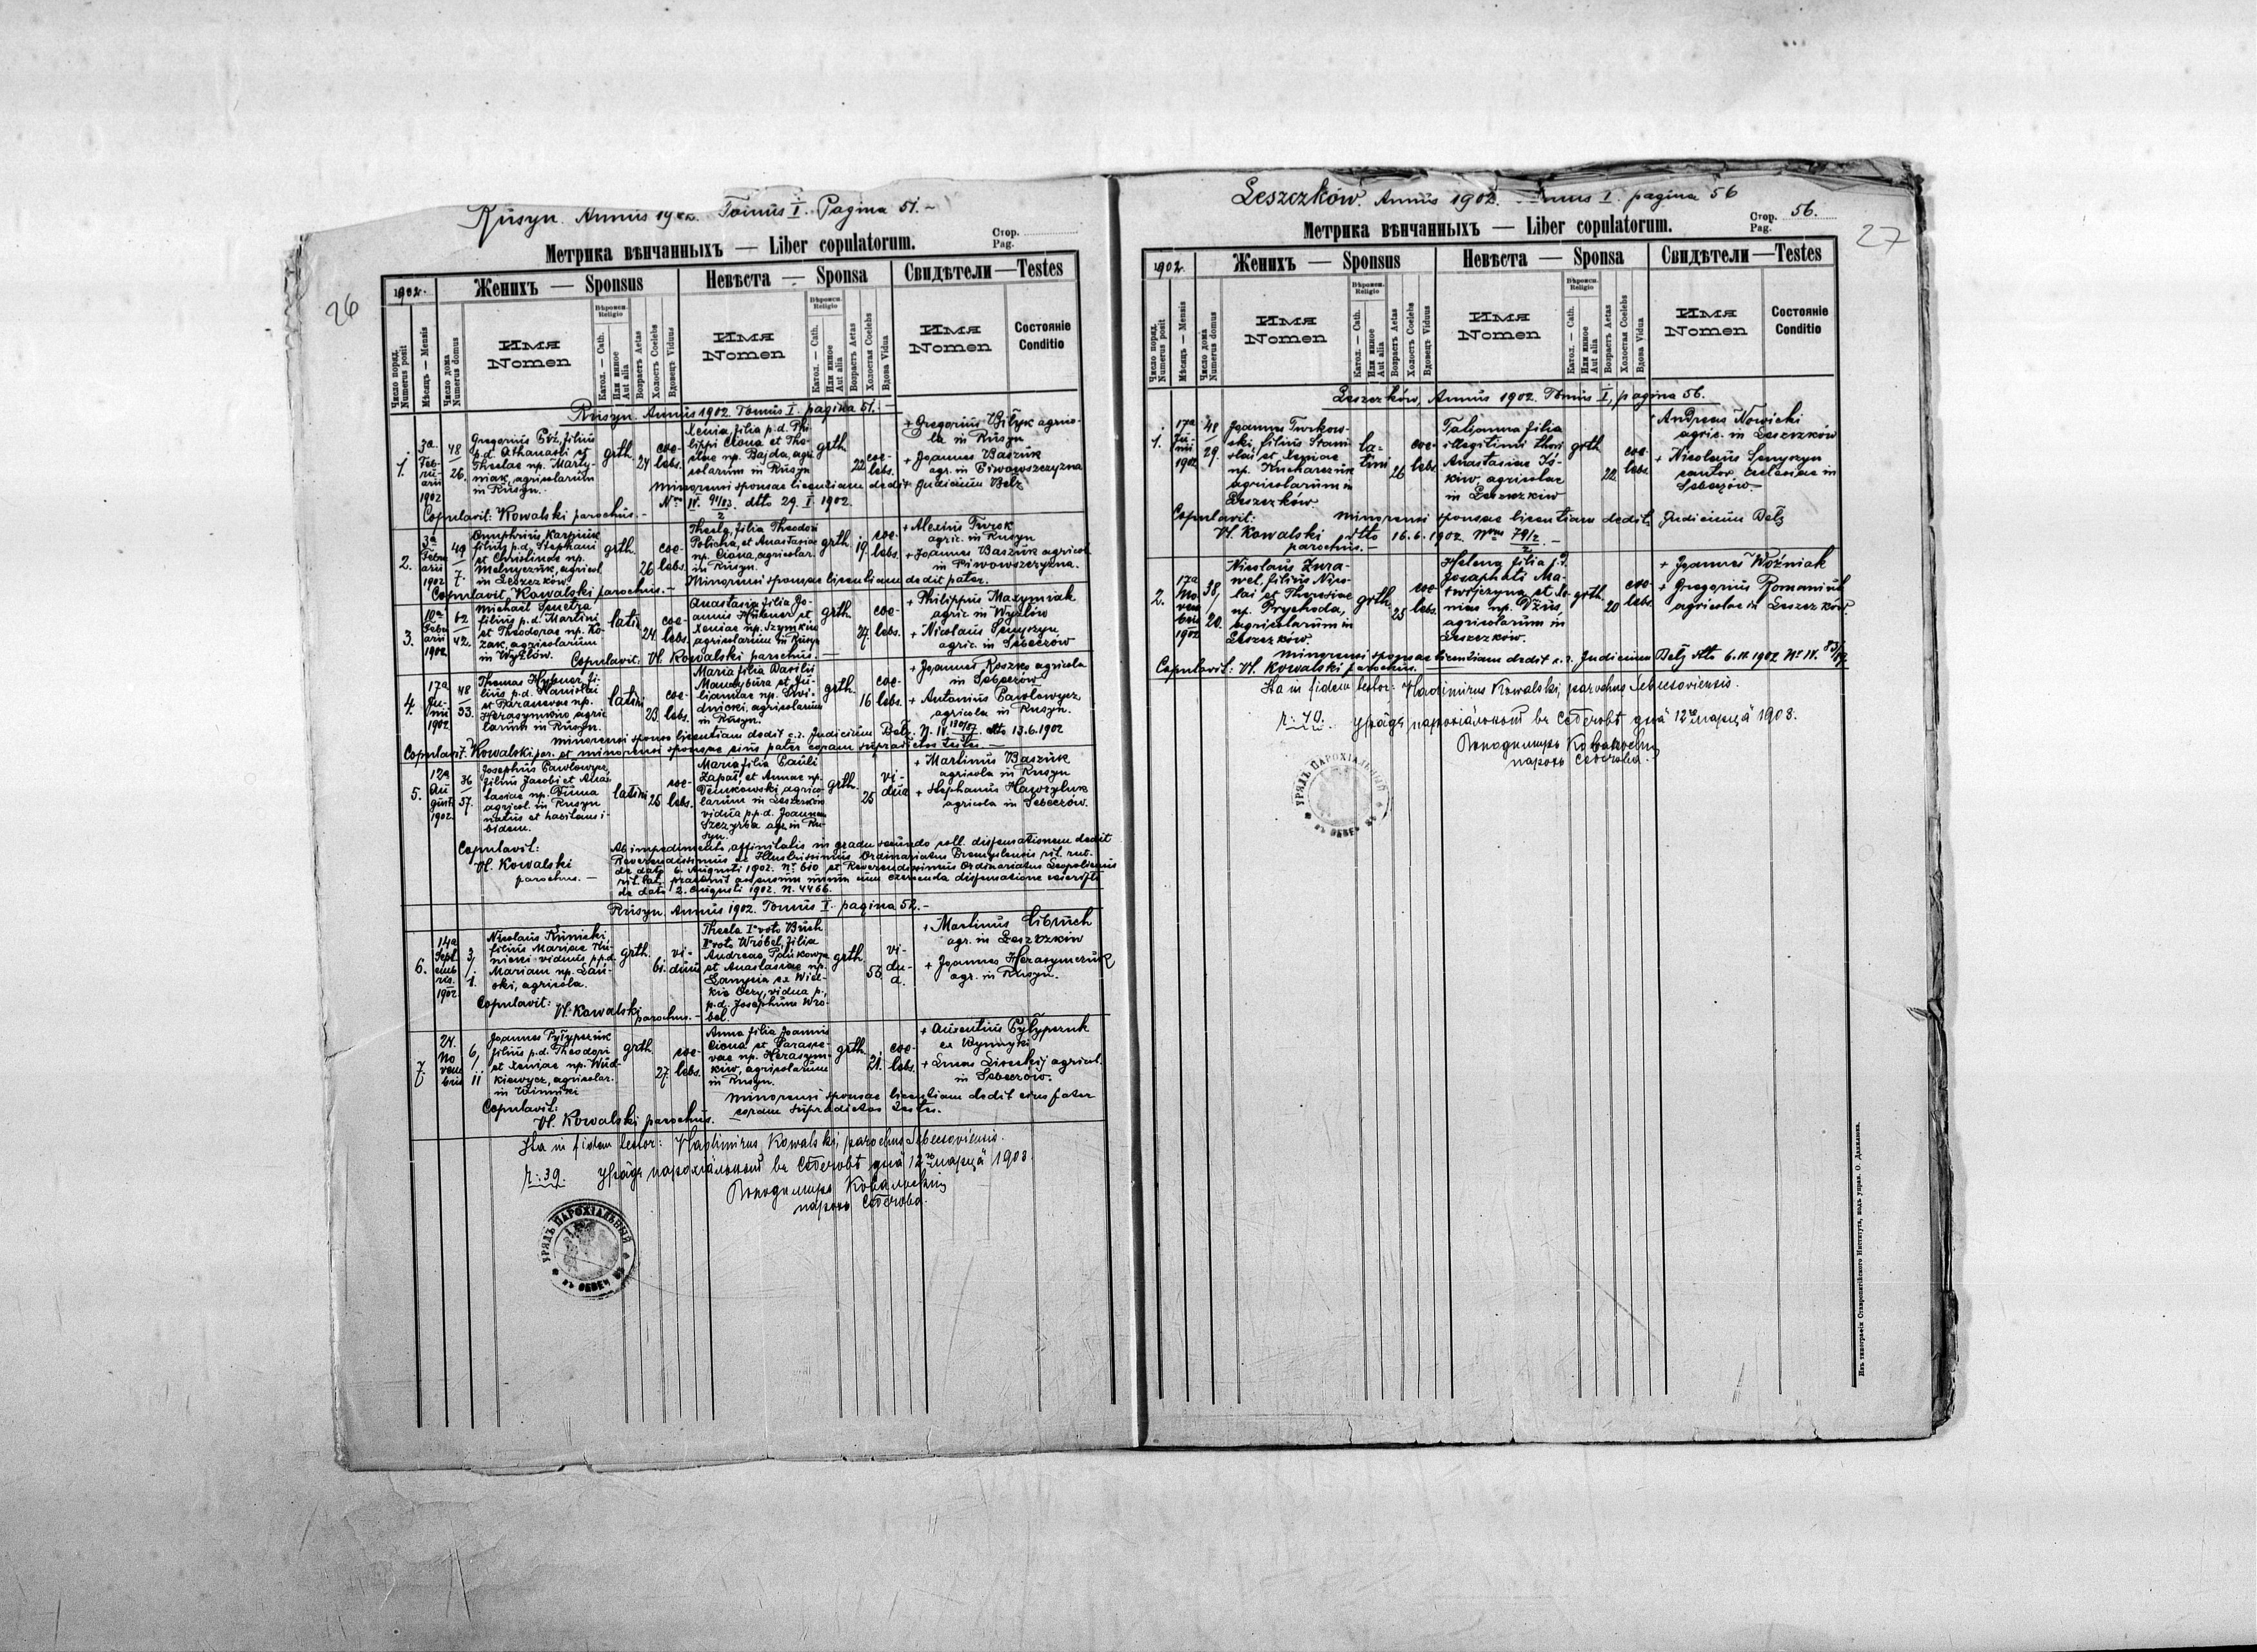 26
Rusyn. Annus 1902. Tomus I. Pagina 51.-
Метрика вѣнчанныхъ — Liber copulatorum.
Стор.
Pag.
1902.
Женихъ — Sponsus
Невѣста — Sponsa
Свидѣтели — Testes
Число поряд.
Numerus posit
Мѣсяцъ — Mensis
Число дома
Numerus domus
Имя
Nomen
Вѣроисп.
Religio
Катол. — Cath.
Или инное
Aut alia
Возрастъ Aetas
Холостъ Coelebs
Вдовецъ Viduus
Имя
Nomen
Вѣроисп.
Religio
Катол. — Cath.
Или инное
Aut alia
Возрастъ Aetas
Холостая Coelebs
Вдова Vidua
Имя
Nomen
Состояніе
Conditio
Rusyn. Annus 1902. Tomus I. pagina 51.-
1.
3a
Feb-
ru-
arii
1902
48
26.
Gregorius filius
p.d. Athanasii et
Theclae np. Marty-
niak, agricolarum
in Rusyn.
grth.
24
coe-
lebs.
Xenia, filia p.d. Phi-
lippi Ciona et Tho-
np. Bajda, agri-
colarum in Rusyn
grth.
22
coe-
lebs.
+ Gregorius Bilyk agrico-
la in Rusyn
+ Joannes Baszuk
agr. in Piwowszczyzna
Minorensi sponsae licentiam dedit Judicium Belz
Nro IV. 91/02/2 dtto 29. I. 1902.
Copulavit: Kowalski parochus.-
2.
3a
Febru
arii
1902
49
7.
Onuphrius Karpiuk
filius p.d. Stephani
et Christinae np.
Melnyczuk, agricol.
in Leszczków
grth.
26
coe-
lebs.
Thecla, filia Theodori
Policha, et Anastasiae
np. Ciona, agricolar.
in Rusyn.
grth.
19
coe-
lebs.
+ Alexius Turok
agric. in Rusyn
+ Joannes Baszuk agricol.
in Piwowszczyzna.
Minorensi sponsae licentiam dedit pater.
Copulavit, Kowalski parochus.-
3.
10a
Febru
arii
1902
62
42.
Michaël
filius p.d. Martini
et Theodorae np. Ko-
zak, agricolarum
in Wyżłów.
latin
24
coe-
lebs.
Anastasia filia Jo-
annis Hübner et
Xeniae np. Szymkiw
agricolarum in Rusyn
grth.
27
coe-
lebs.
+ Philippus Maxymiak
agric. in Wyżłów
+ Nicolaus Semyszyn
agric. in Sebeczów
Copulavit: Vl. Kowalski parochus.-
4.
17a
Ju-
nii
1902
48
53.
Thomas Hybner, fi-
lius p.d. Stanislai
et Parascevae np.
Herasymkiw agrico-
larum in Rusyn.
latin
23
coe-
lebs.
Maria filia Basilii
Mandybura et Ju-
liannae np. Swi-
dnicki, agricolarum
in Rusyn.
grth.
16
coe-
lebs.
+ Joannes Koszko agricola
in Sebeczów
+ Antonius Pawłowycz
agricola in Rusyn.
Minorensi sponso licentiam dedit c.r. Judicium Belz. N. IV. dtto 13.6.1902
Copulavit. Kowalski par. et minorensi sponsae eius pater coram supradictos testes.-
5.
12a
Au
gusti
1902.
36
57.
Josephus Pawłowycz
filius Jacobi et Anas-
tasiae np. Duma
agricol. in Rusyn
natus et habitans i-
bidem.
latini
25
coe-
lebs.
Maria filia Pauli
Zapał, et Annae np.
Demkowski, agrico-
larum in Leszczków
vidua p.p.d. Joannem
Szczyrba agr. in Ru-
syn.
grth.
25
vi-
dua
+ Martinus Baszuk
agricola in Rusyn
+ Stephanus Hawryluk
agricola in Sebeczów.
Copulavit:
Vl. Kowalski
parochus.-
Ab impedimento affinitatis in gradu secundo coll. dispensationem dedit
Reverendissimus ac Illustrissimus Ordinariatus Premyslensis rit. rut.
de dato 6. Augusti 1902. No 610 et Reverendissimus Ordinariatus Leopoliensis
rit. lat. praebuit assensum suum cum exercenda dispensatione
de dato 2. Augusti 1902. N. 4466.
Rusyn. Annus 1902. Tomus I. pagina 52.-
6.
14a
Sept
emb
ris.
1902
3
1.
Nicolaus Kunicki
filius Mariae Ku-
nicki viduus p.p.d.
Mariam np. Lań-
ski, agricola.
grth.
61.
vi-
duus
Thecla Io voto Buch
IIo voto Wróbel, filia
Andreae
et Anastasiae np.
Łanycia ex Wiel-
kie Oczy, vidua p.
p.d. Josephum Wró-
bel.
grth.
56
vi-
du-
a.
+ Martinus Libruch
agr. in Leszczków
+ Joannes Herasymczuk
agr. in Rusyn.
Copulavit:
Vl. Kowalski
parochus.-
7.
24.
No
vem
bris
6
11
Joannes Pyłypczuk
filius p.d. Theodori
et Xeniae np. Wud-
kiewycz, agricolar.
in Winniki
grth.
27
coe-
lebs.
Anna filia Joannis
Ciona et Parasce-
vae np. Herasym-
kiw, agricolarum
in Rusyn.
grth.
21.
coe-
lebs.
+ Auxentius Pyłypczuk
ex Wynnyki
+ Lucas agricol.
in Sebeczów.
Minorensi sponsae licentiam dedit eius pater
coram supradictos testes.
Copulavit:
Vl. Kowalski parochus.
Ita in fidem testor: Vladimirus Kowalski, parochus Sebeczoviensis.
N: 39. Урядъ парохіальный въ Себечовѣ дня 12го марця 1903.
Володимиръ Ковальскій
парохъ Себечова.
УРЯДЪ ПАРОХІАЛЬНЫЙ
27
Leszczków. Annus 1902. Tomus I. pagina 56
Метрика вѣнчанныхъ — Liber copulatorum.
Стор.
Pag.
56.
1902.
Женихъ — Sponsus
Невѣста — Sponsa
Свидѣтели — Testes
Число поряд.
Numerus posit
Мѣсяцъ — Mensis
Число дома
Numerus domus
Имя
Nomen
Вѣроисп.
Religio
Катол. — Cath.
Или инное
Aut alia
Возрастъ Aetas
Холостъ Coelebs
Вдовецъ Viduus
Имя
Nomen
Вѣроисп.
Religio
Катол. — Cath.
Или инное
Aut alia
Возрастъ Aetas
Холостая Coelebs
Вдова Vidua
Имя
Nomen
Состояніе
Conditio
Leszczków, Annus 1902. Tomus I, pagina 56.
1.
17a
Ju-
nii
1902
48
29.
Joannes Turkow-
ski, filius Stani-
slai et Xeniae
np. Kucharczuk
agricolarum in
Leszczków
la-
tini
26
coe-
lebs
Tatjanna filia
illegitimi thori
Anastasiae Iś-
kiw, agricolae
in Leszczków
grth
22
coe-
lebs
+ Andreas Nowicki
agric. in Leszczków
+ Nicolaus Semyszyn
cantor ecclesiae in
Sebeczów.
Copulavit:
Vl. Kowalski
parochus.-
Minorensi sponsae licentiam dedit Judicium Belz
dtto 16.6.1902. Nro 79/2/2.-
2.
17a
No
vem
bris
1902
38
20.
Nicolaus Żura-
wel, filius Nico-
lai et Theresiae
np. Prychoda,
agricolarum in
Leszczków
grth
25
coe-
lebs.
Helena filia p.d.
Josaphati Ma-
twijczyna, et Xe-
niae np. Dżus,
agricolarum in
Leszczków.
grth.
20
coe-
lebs
+ Joannes Woźniak
+ Gregorius Romaniuk
agricolae in Leszczków.
Minorensi sponsae licentiam dedit c.r. Judicium Belz dtto 1902 Nr IV.
Copulavit: Vl. Kowalski parochus.
Ita in fidem testor: Vladimirus Kowalski, parochus Sebeczoviensis.
N: 40. Урядъ парохіальный въ Себечовѣ дня 12го марця 1903.
Володимиръ Ковальскій
парохъ Себечова.
УРЯДЪ ПАРОХІАЛЬНЫЙ
Изъ типографіи Ставропигійского Института, подъ управ. О. Данилюка.